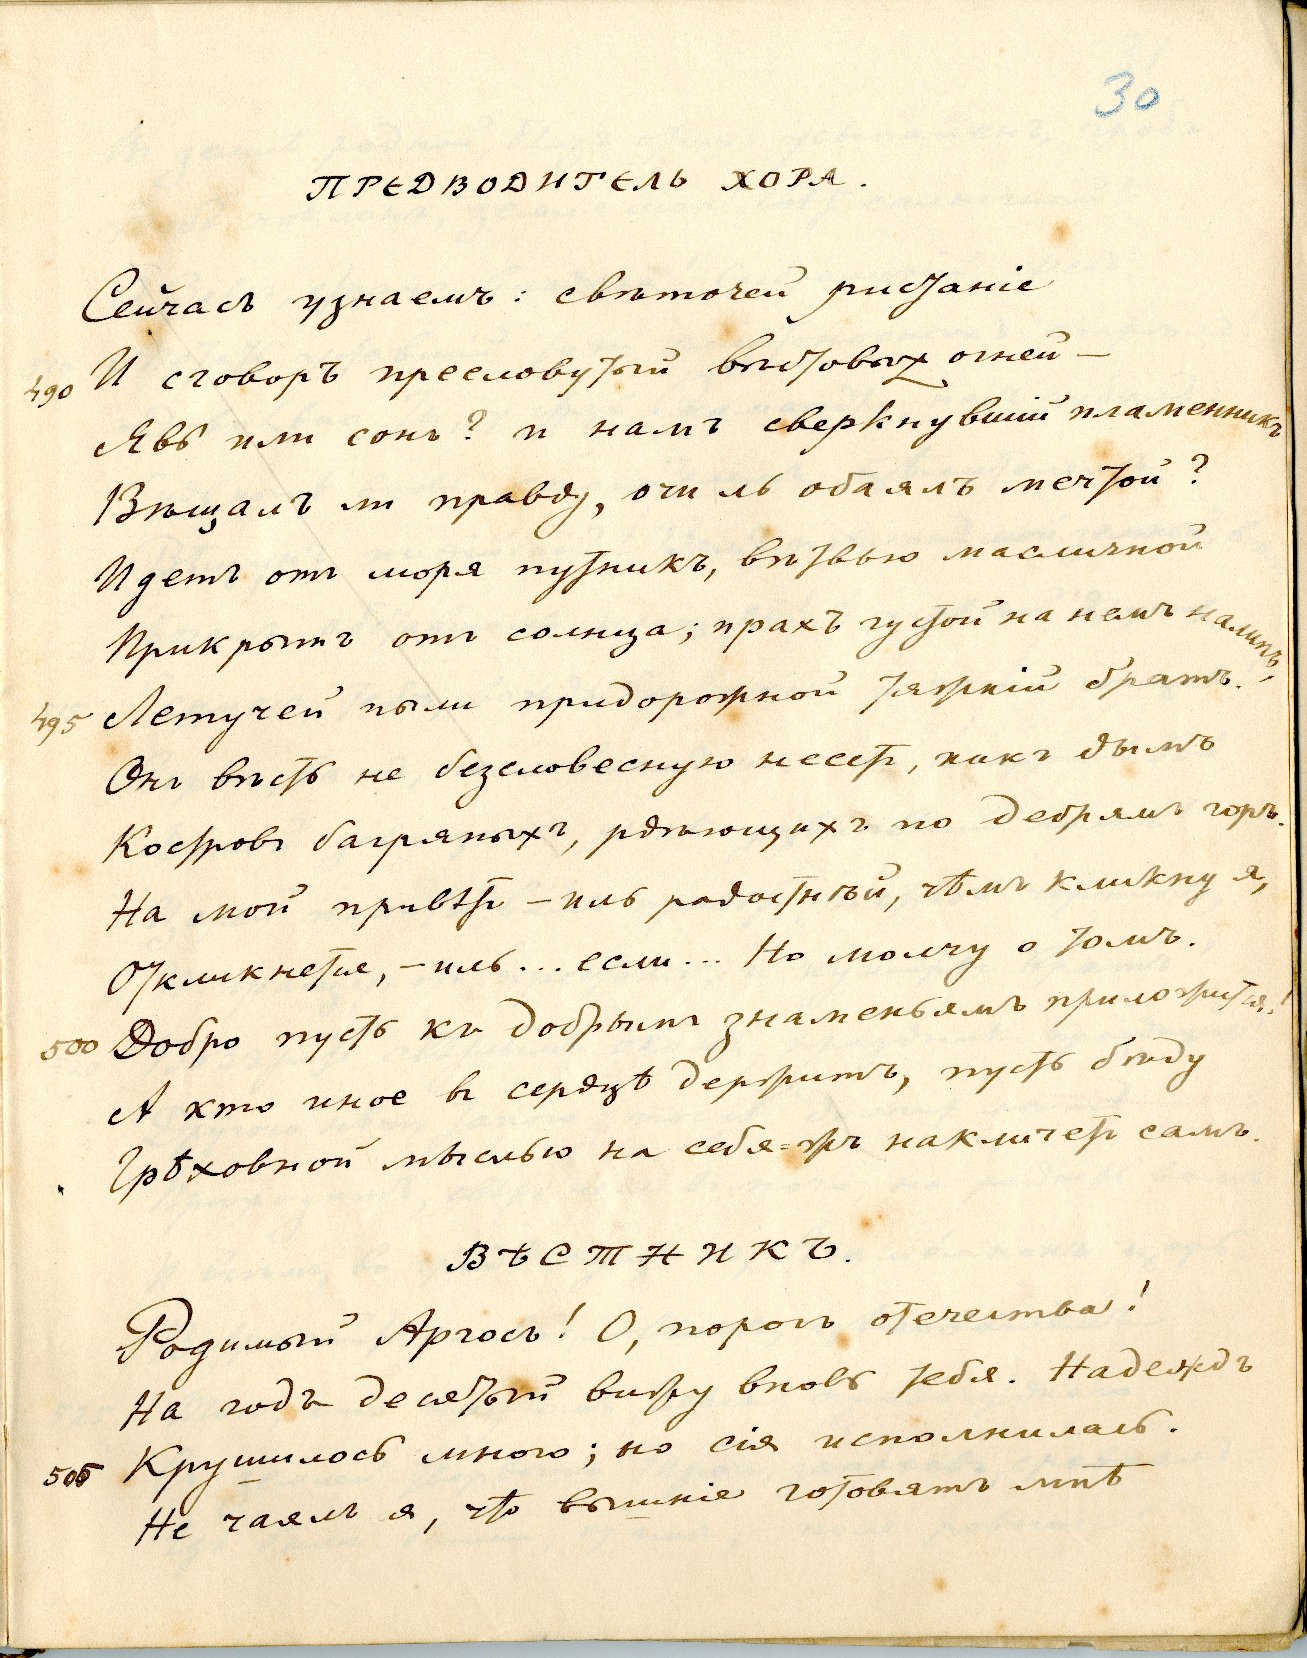 30
ПРЕДВОДИТЕЛЬ ХОРА.
Сейчасъ узнаемъ: свѣточей ристаніе
490 И сговоръ пресловутый вѣстовых огней —
Явь или сонъ? и намъ сверкнувшій пламенникъ
Вѣщалъ ли правду, очи ль обаялъ мечтой?
Идетъ отъ моря путникъ, вѣтвью масличной
Прикрытъ отъ солнца; прахъ густой на немъ налипъ,
495 Летучей пыли придорожной тяжкій братъ.
Онъ вѣсть не безсловесную несетъ, какъ дымъ
Костровъ багряныхъ, рдѣющихъ по дебрямъ горъ.
На мой привѣтъ — иль радостный, чѣмъ кликну я,
Откликнется, — иль... если... Но молчу о томъ.
500 Добро пусть къ добрымъ знаменьямъ приложится!
А кто иное въ сердцѣ держитъ, пусть бѣду
Грѣховной мыслью на себя=жъ накличетъ самъ.
ВѢСТНИКЪ.
Родимый Аргосъ! О, порогъ отечества!
На годъ десятый вижу вновь тебя. Надеждъ
505 Крушилось много; но сія исполнилась.
Не чаялъ я, что вышніе готовятъ мнѣ